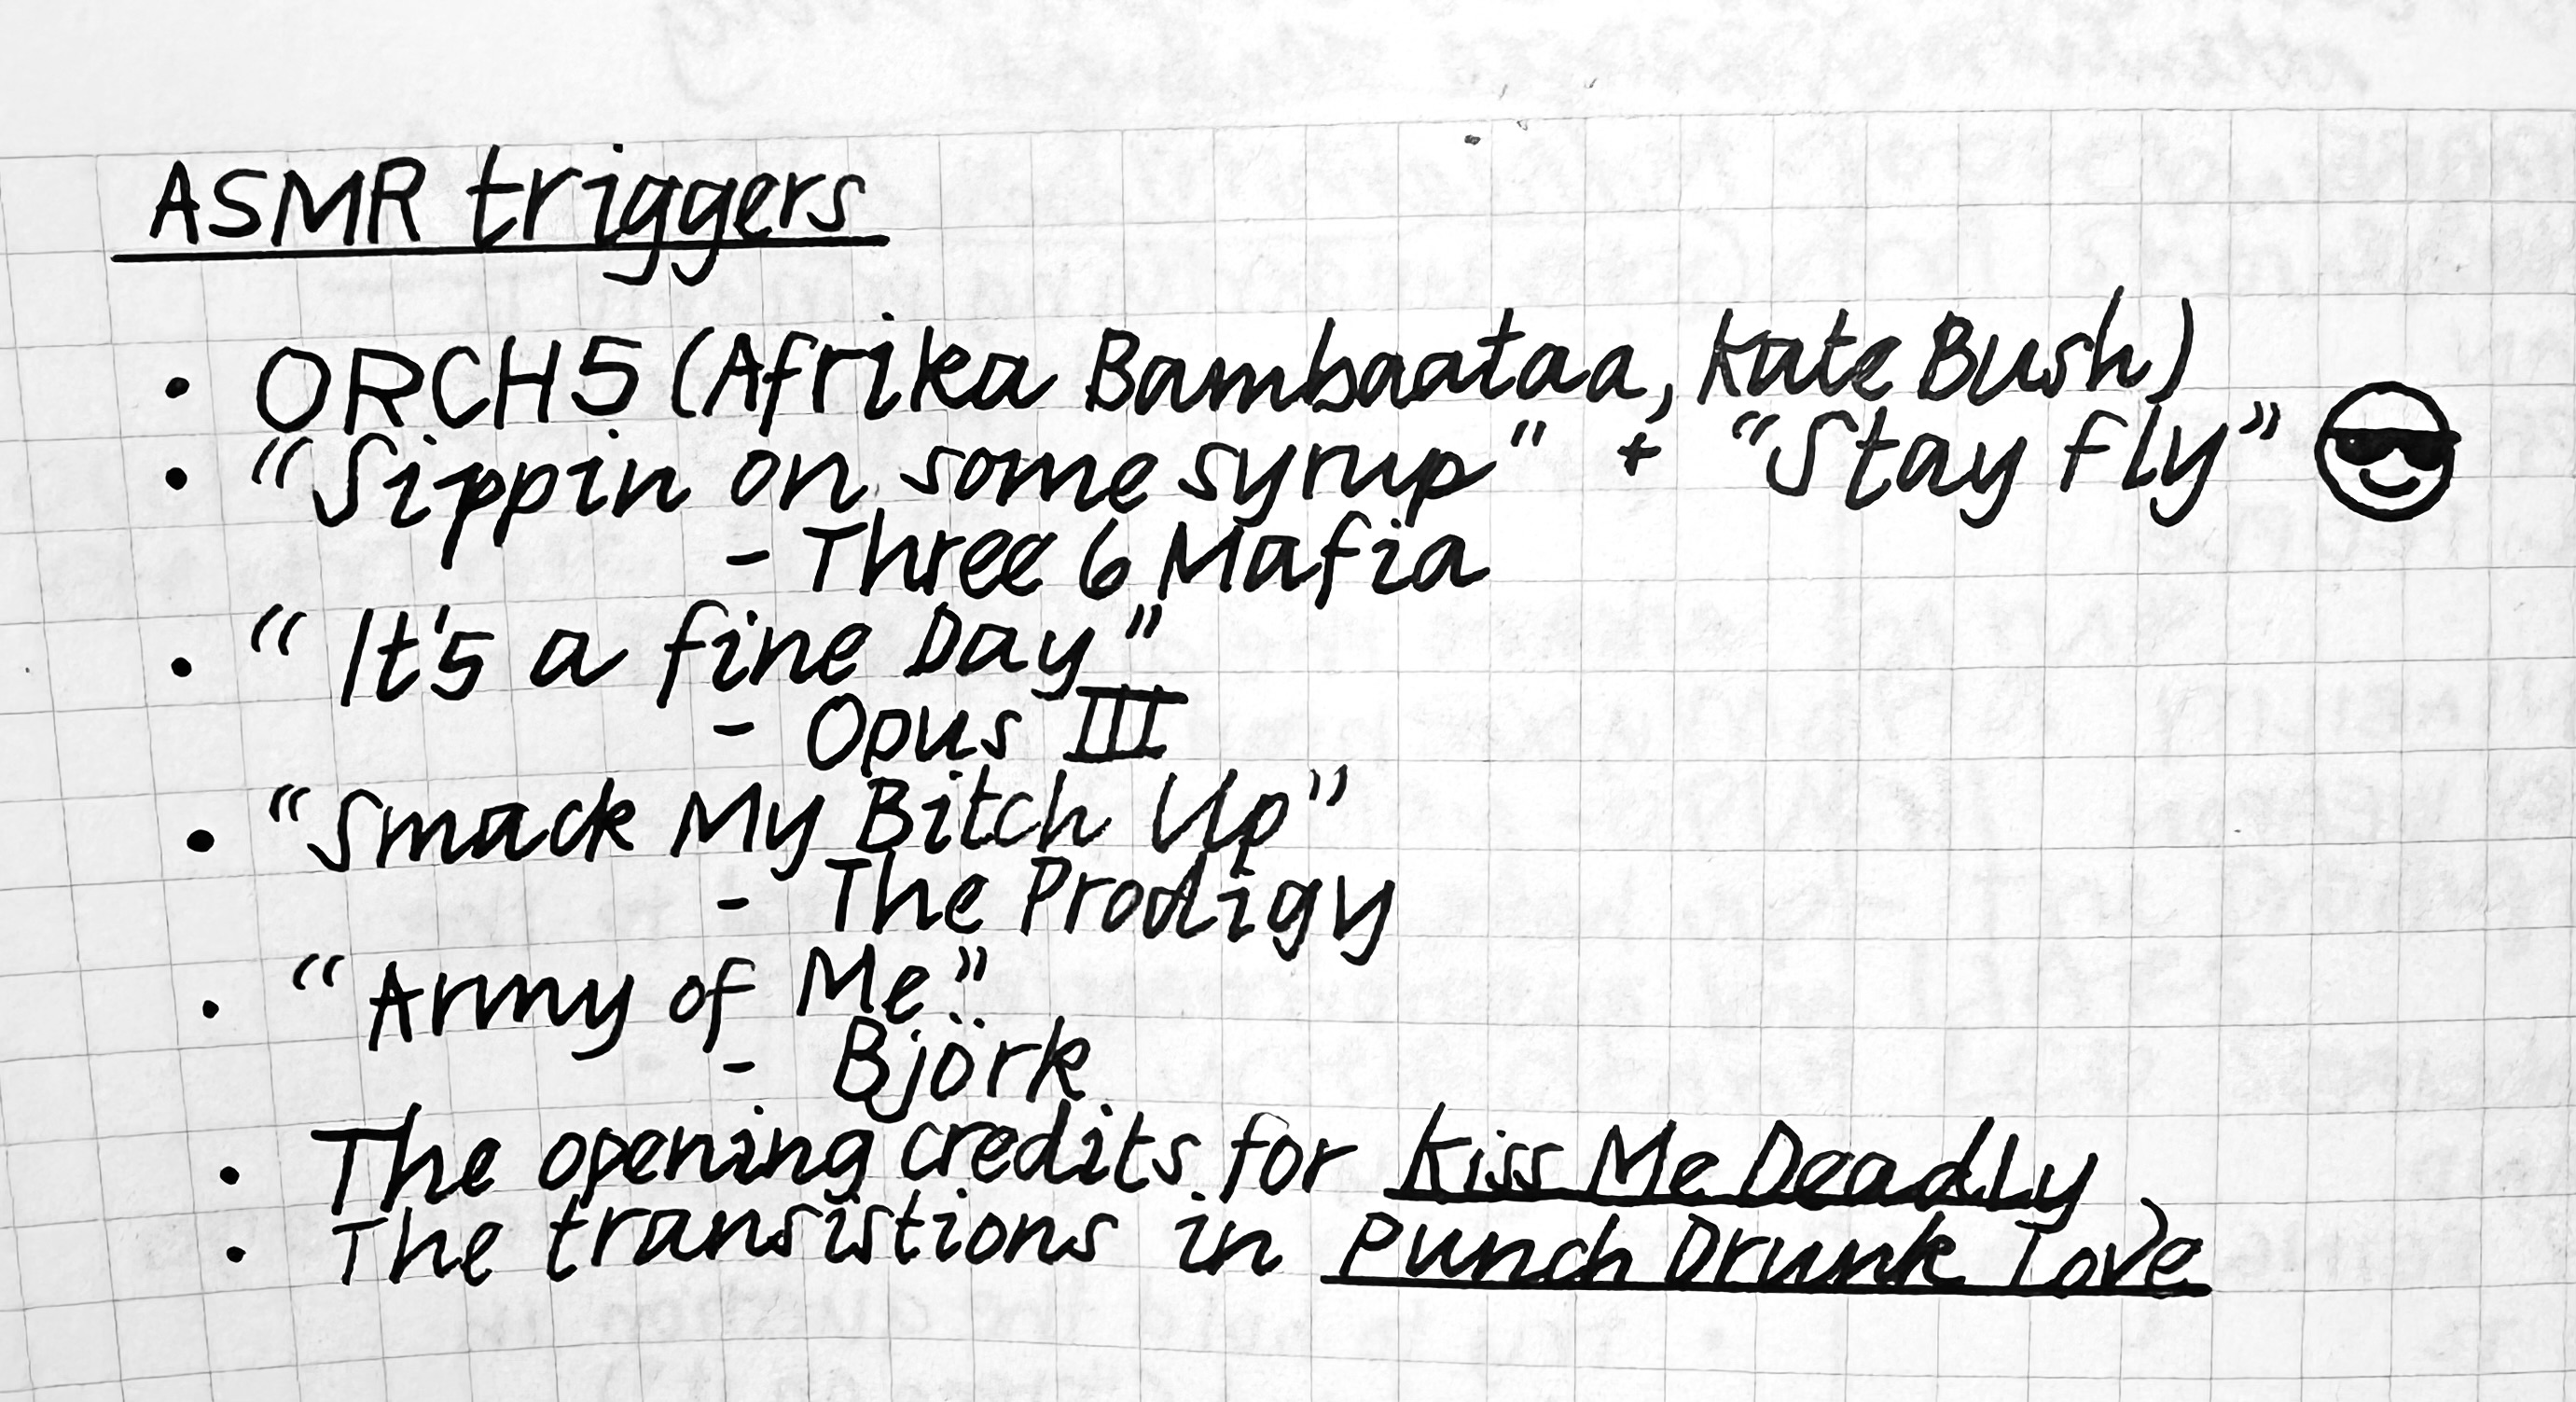 ASMR triggers
• ORCH5 (Afrika Bambaataa, Kate Bush)
• "Sippin on some syrup" + "Stay Fly" 😎
- Three 6 Mafia
• "It's a fine Day"
- Opus III
• "Smack My Bitch Up"
- The Prodigy
• "Army of Me"
- Björk
• The opening credits for Kiss Me Deadly
• The transistions in Punch Drunk Love